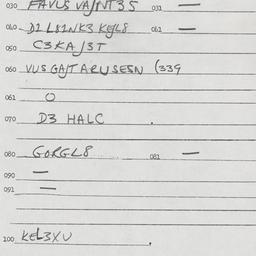 030 FAVUS VAJNT35 031 —
040 D2 L81NK3 KEJL8 061 —
050 C3KAJ3T
060 VUS GAJT ARUSESN (339
061 O
070 D3 HALC .
080 GORGL8 081 —
090 —
091 —
100 KEL3XU .